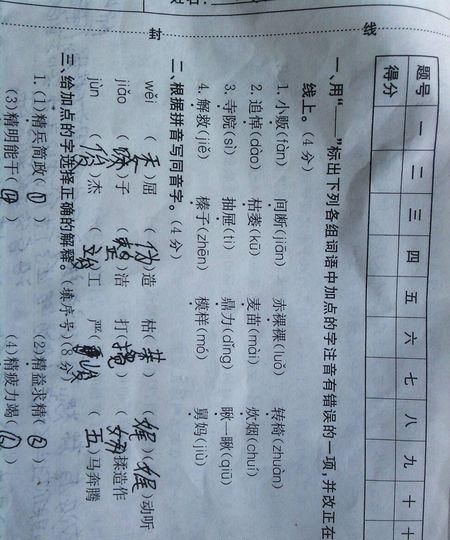 线
封
题号 一 二 三 四 五 六 七 八 九 十 十
得分
一、用“____”标出下列各组词语中加点的字注音有错误的一项,并改正在
线上。(4分)
1. 小贩(fàn) 间断(jiān) 赤裸裸(luǒ) 转椅(zhuàn)
2. 追悼(dào) 枯萎(kū) 麦苗(mài) 炊烟(chuí)
3. 寺院(sì) 抽屉(ti) 鼎力(dǐng) 瞅一瞅(qiū)
4. 解救(jiě) 榛子(zhēn) 模样(mó) 舅妈(jiù)
二、根据拼音写同音字。(4分)
wěi ( )屈 (伪)造 枯( ) (娓)(娓)动听
jiǎo ( )子 ( )洁 打( ) ( )揉造作
jùn (俊)杰 ( )工 严( ) ( )马奔腾
三、给加点的字选择正确的解释。(填序号)(8分)
1. (1)精兵简政( ) (2)精益求精( )
(3)精明能干( ) (4)精疲力竭( )